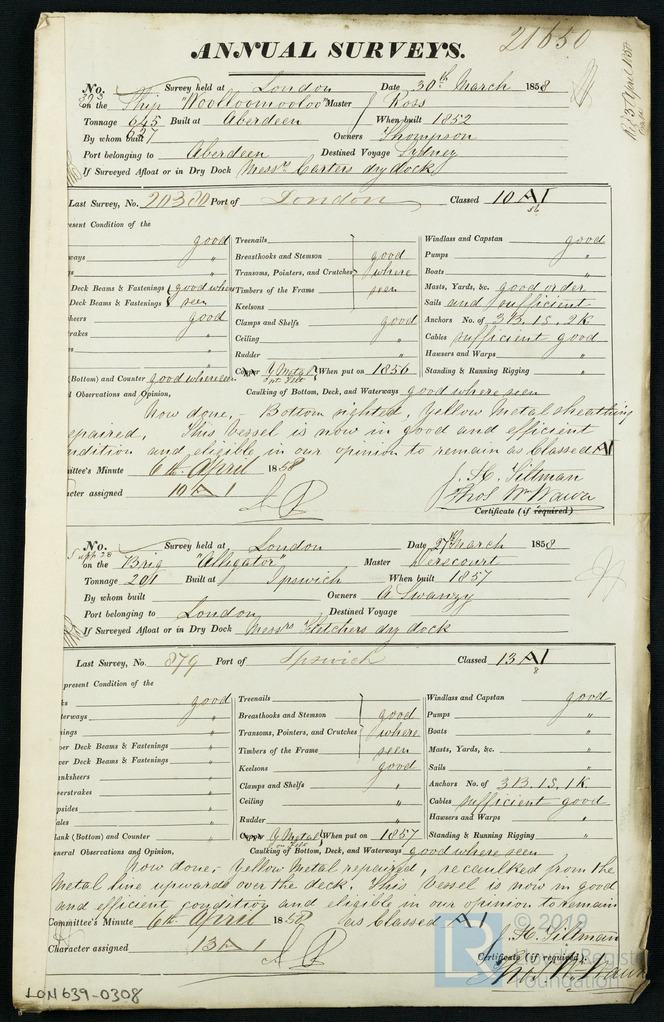 21650
ANNUAL SURVEYS.
No. 393 Survey held at London Date 30th March 1858
on the Ship "Woolloomooloo" Master Ross
Tonnage 645 Built at Aberdeen When built 1852
627
By whom built Owners Thompson
Port belonging to Aberdeen Destined Voyage Sydney
If Surveyed Afloat or in Dry Dock Messrs Carters dry dock
Last Survey, No. 20380 Port of London Classed 10 A1
56
esent Condition of the
good Treenails Windlass and Capstan good
ways " Breasthooks and Stemson good Pumps "
s " Transoms, Pointers, and Crutches where Boats "
Deck Beams & Fastenings good where Timbers of the Frame seen Masts, Yards, &c. good order
Deck Beams & Fastenings seen Keelsons Sails and sufficient
heers good Clamps and Shelfs good Anchors No. of 3B.1S.2K
rakes " Ceiling " Cables sufficient good
es " Rudder " Hawsers and Warps "
" Copper Y Metal When put on 1856 Standing & Running Rigging "
(Bottom) and Counter good where seen Caulking of Bottom, Deck, and Waterways good where seen
l Observations and Opinion,
Now done,- Bottom sighted, Yellow Metal sheathing
epaired. This Vessel is now in good and efficient
ndition and eligible in our opinion to remain as Classed A1
ittee's Minute 6th April 1858
acter assigned 10 A 1
Certificate (if required)
No. Survey held at London Date 27th March 1858
on the Brig "Alligator" Master
Tonnage 201 Built at Ipswich When built 1857
By whom built Owners A Swanzy
Port belonging to London Destined Voyage
If Surveyed Afloat or in Dry Dock Messrs Fletchers dry dock
Last Survey, No. 879 Port of Ipswich Classed 13 A1
8
present Condition of the
ks good Treenails Windlass and Capstan good
terways " Breasthooks and Stemson good Pumps "
mings " Transoms, Pointers, and Crutches where Boats "
per Deck Beams & Fastenings " Timbers of the Frame seen Masts, Yards, &c. "
wer Deck Beams & Fastenings " Keelsons good Sails "
anksheers " Clamps and Shelfs " Anchors No. of 3B.1S.1K
verstrakes " Ceiling " Cables sufficient good
psides " Rudder " Hawsers and Warps "
ales " Copper Y Metal on Felt When put on 1857 Standing & Running Rigging "
lank (Bottom) and Counter " Caulking of Bottom, Deck, and Waterways good where seen
eneral Observations and Opinion,
Now done,- Yellow Metal repaired, recaulked from the
Metal line upwards over the deck. This Vessel is now in good
and efficient condition and eligible in our opinion to remain
Committee's Minute 6th April 1858 as Classed A1
Character assigned 13 A 1
Certificate (if required)
© 2019
LR
Foundation
LON639-0308